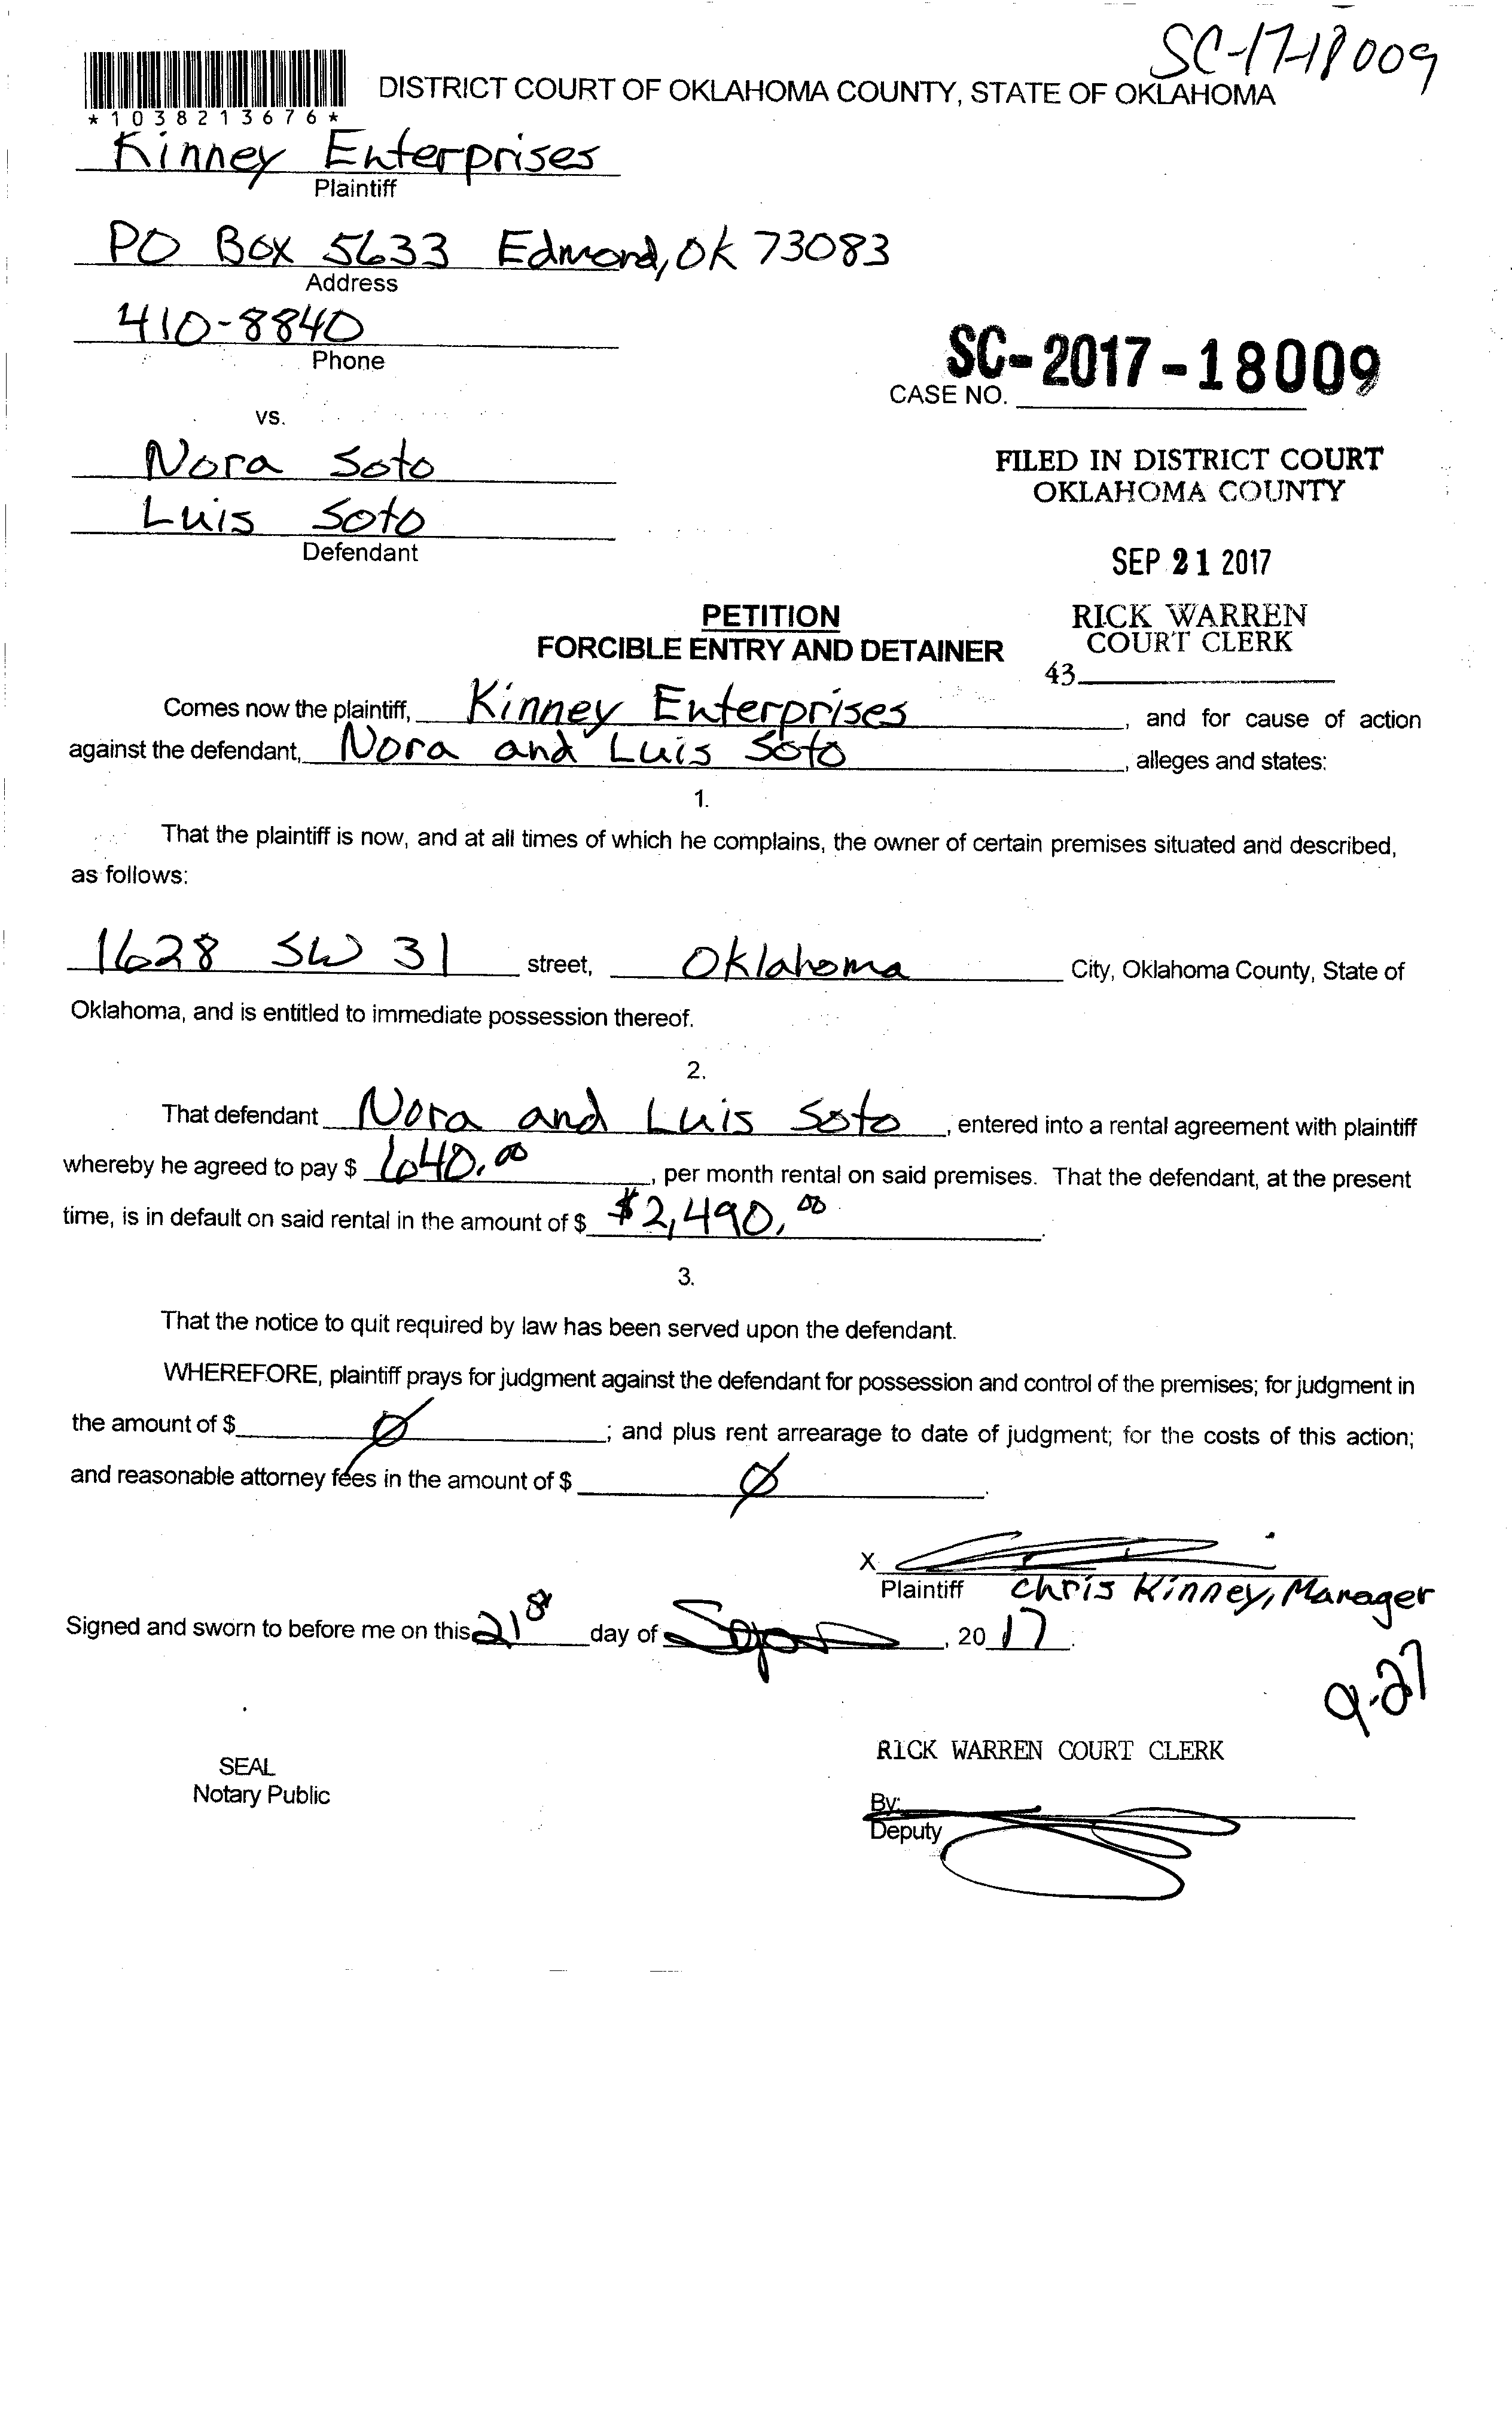 SC-17-18009
DISTRICT COURT OF OKLAHOMA COUNTY, STATE OF OKLAHOMA
*1038213676*
Kinney Enterprises
Plaintiff
PO Box 5633 Edmond, OK 73083
Address
410-8840
Phone
SC-2017-18009
CASE NO.
vs.
Nora Soto
Luis Soto
Defendant
FILED IN DISTRICT COURT
OKLAHOMA COUNTY
SEP 21 2017
RICK WARREN
COURT CLERK
43
PETITION
FORCIBLE ENTRY AND DETAINER
Comes now the plaintiff, Kinney Enterprises, and for cause of action
against the defendant, Nora and Luis Soto, alleges and states:
1.
That the plaintiff is now, and at all times of which he complains, the owner of certain premises situated and described,
as follows:
1628 SW 31 street, Oklahoma City, Oklahoma County, State of
Oklahoma, and is entitled to immediate possession thereof.
2.
That defendant Nora and Luis Soto, entered into a rental agreement with plaintiff
whereby he agreed to pay $ 640.00, per month rental on said premises. That the defendant, at the present
time, is in default on said rental in the amount of $ $2,490.00.
3.
That the notice to quit required by law has been served upon the defendant.
WHEREFORE, plaintiff prays for judgment against the defendant for possession and control of the premises; for judgment in
the amount of $ Ø; and plus rent arrearage to date of judgment; for the costs of this action;
and reasonable attorney fees in the amount of $ Ø.
X
Plaintiff Chris Kinney, Manager
Signed and sworn to before me on this 21 day of , 2017.
9-27
SEAL
Notary Public
RICK WARREN COURT CLERK
By:
Deputy